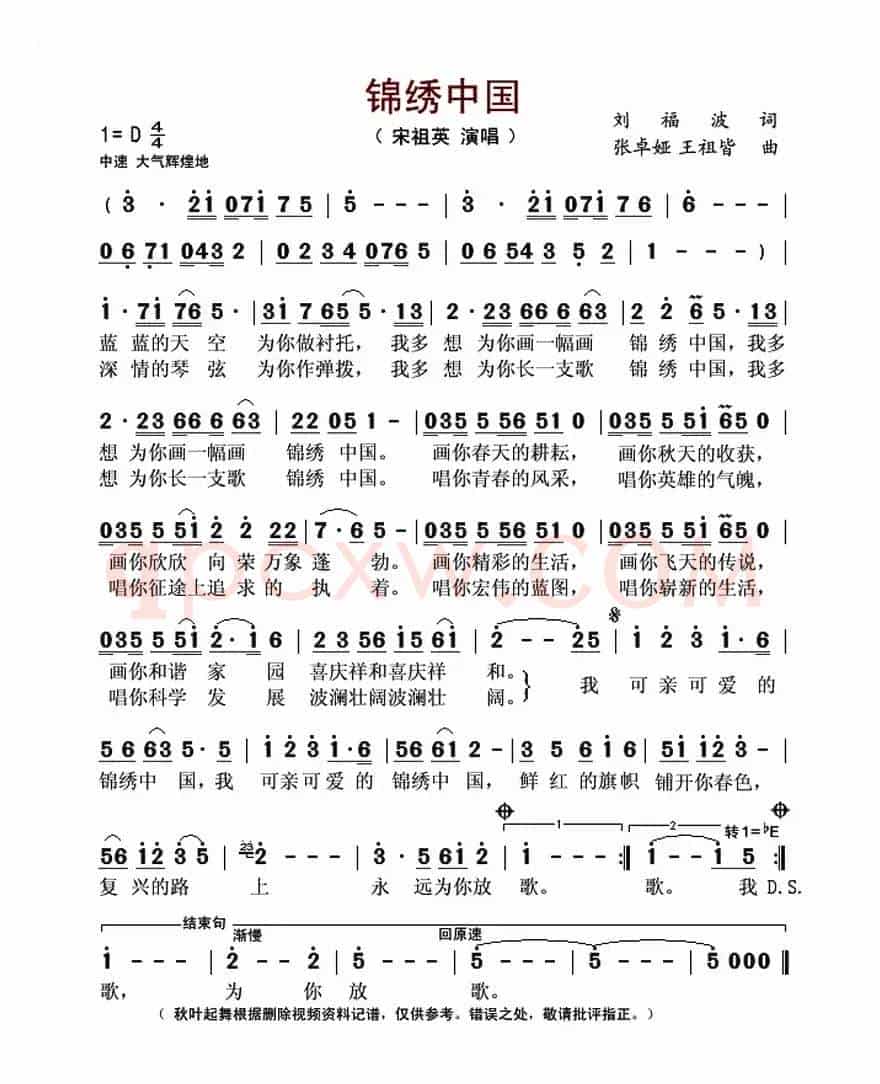 锦绣中国
（ 宋祖英 演唱 ）
1= D 4/4
中速 大气辉煌地
刘 福 波 词
张卓娅 王祖皆 曲
( 3 · 21 071 7 5 | 5 - - - | 3 · 21 071 7 6 | 6 - - - |
0 6 71 043 2 | 0 2 3 4 076 5 | 0 6 54 3 5 2 | 1 - - - ) |
1 · 71 76 5 · | 31 7 65 5 · 13 | 2 · 23 66 6 63 | 2 2 6 5 · 13 |
蓝 蓝的天 空 为你做衬托，我多 想 为你画一幅画 锦 绣 中国，我多
深 情的琴 弦 为你作弹拨，我多 想 为你长一支歌 锦 绣 中国，我多
2 · 23 66 6 63 | 22 05 1 - | 035 5 56 51 0 | 035 5 51 65 0 |
想 为你画一幅画 锦绣 中国。 画你春天的耕耘， 画你秋天的收获，
想 为你长一支歌 锦绣 中国。 唱你青春的风采， 唱你英雄的气魄，
035 5 51 2 2 22 | 7 · 6 5 - | 035 5 56 51 0 | 035 5 51 65 0 |
画你欣欣 向荣万象 蓬 勃。 画你精彩的生活， 画你飞天的传说，
唱你征途上追求的 执 着。 唱你宏伟的蓝图， 唱你崭新的生活，
qpcxw.com
035 5 51 2 · 1 6 | 2 3 56 15 61 | 2 - - 25 | 1 2 3 1 · 6 |
画你和谐 家 园 喜庆祥和喜庆祥 和。 我 可亲可爱的
唱你科学 发 展 波澜壮阔波澜壮 阔。
5 6 63 5 · 5 | 1 2 3 1 · 6 | 56 61 2 - | 3 5 6 1 6 | 51 12 3 - |
锦绣中 国，我 可亲可爱的 锦绣中 国， 鲜 红 的旗帜 铺开你春色，
1 2 转1=bE
56 12 3 5 | 23 2 - - - | 3 · 5 61 2 | 1 - - - :| 1 - - 1 5 :|
复 兴的路 上 永 远为你放 歌。 歌。 我 D.S.
结束句 渐慢 回原速
1 - - - | 2 - 2 - | 5 - - - | 5 - - - | 5 - - - | 5 000 ‖
歌， 为 你 放 歌。
（ 秋叶起舞根据删除视频资料记谱，仅供参考。错误之处，敬请批评指正。）